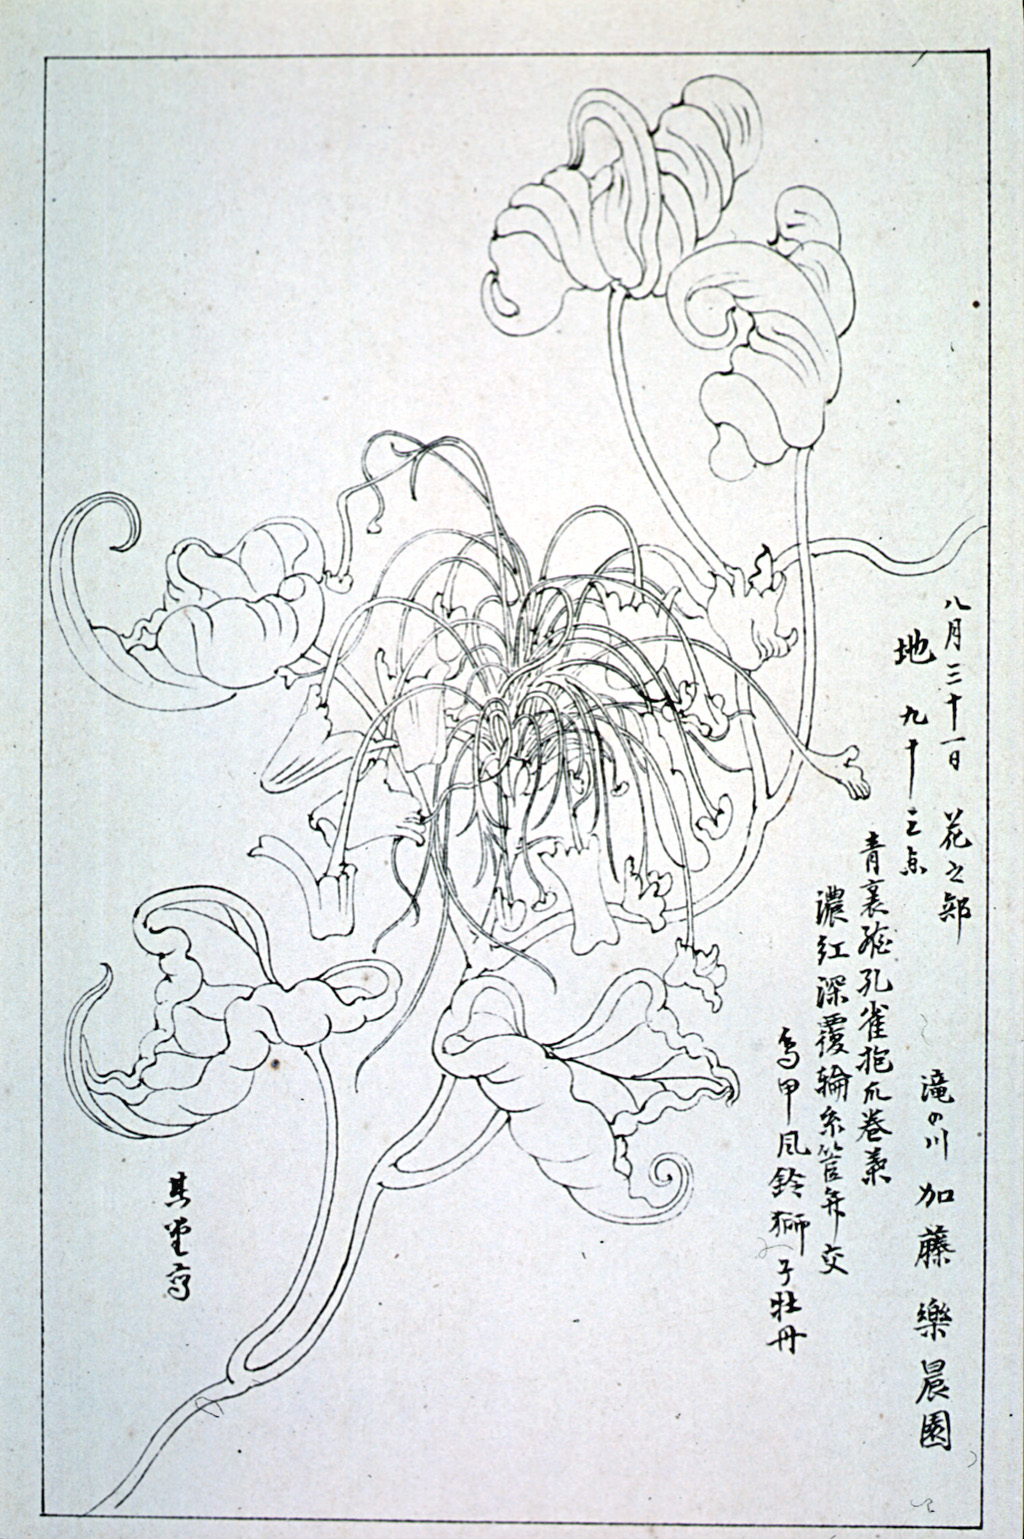 八月三十一日 花之部
地 九十三点
滝の川 加藤樂晨園
青裏 孔雀抱爪巻葉
濃紅深覆輪糸管弁交
鳥甲風鈴獅子牡丹
其堂写